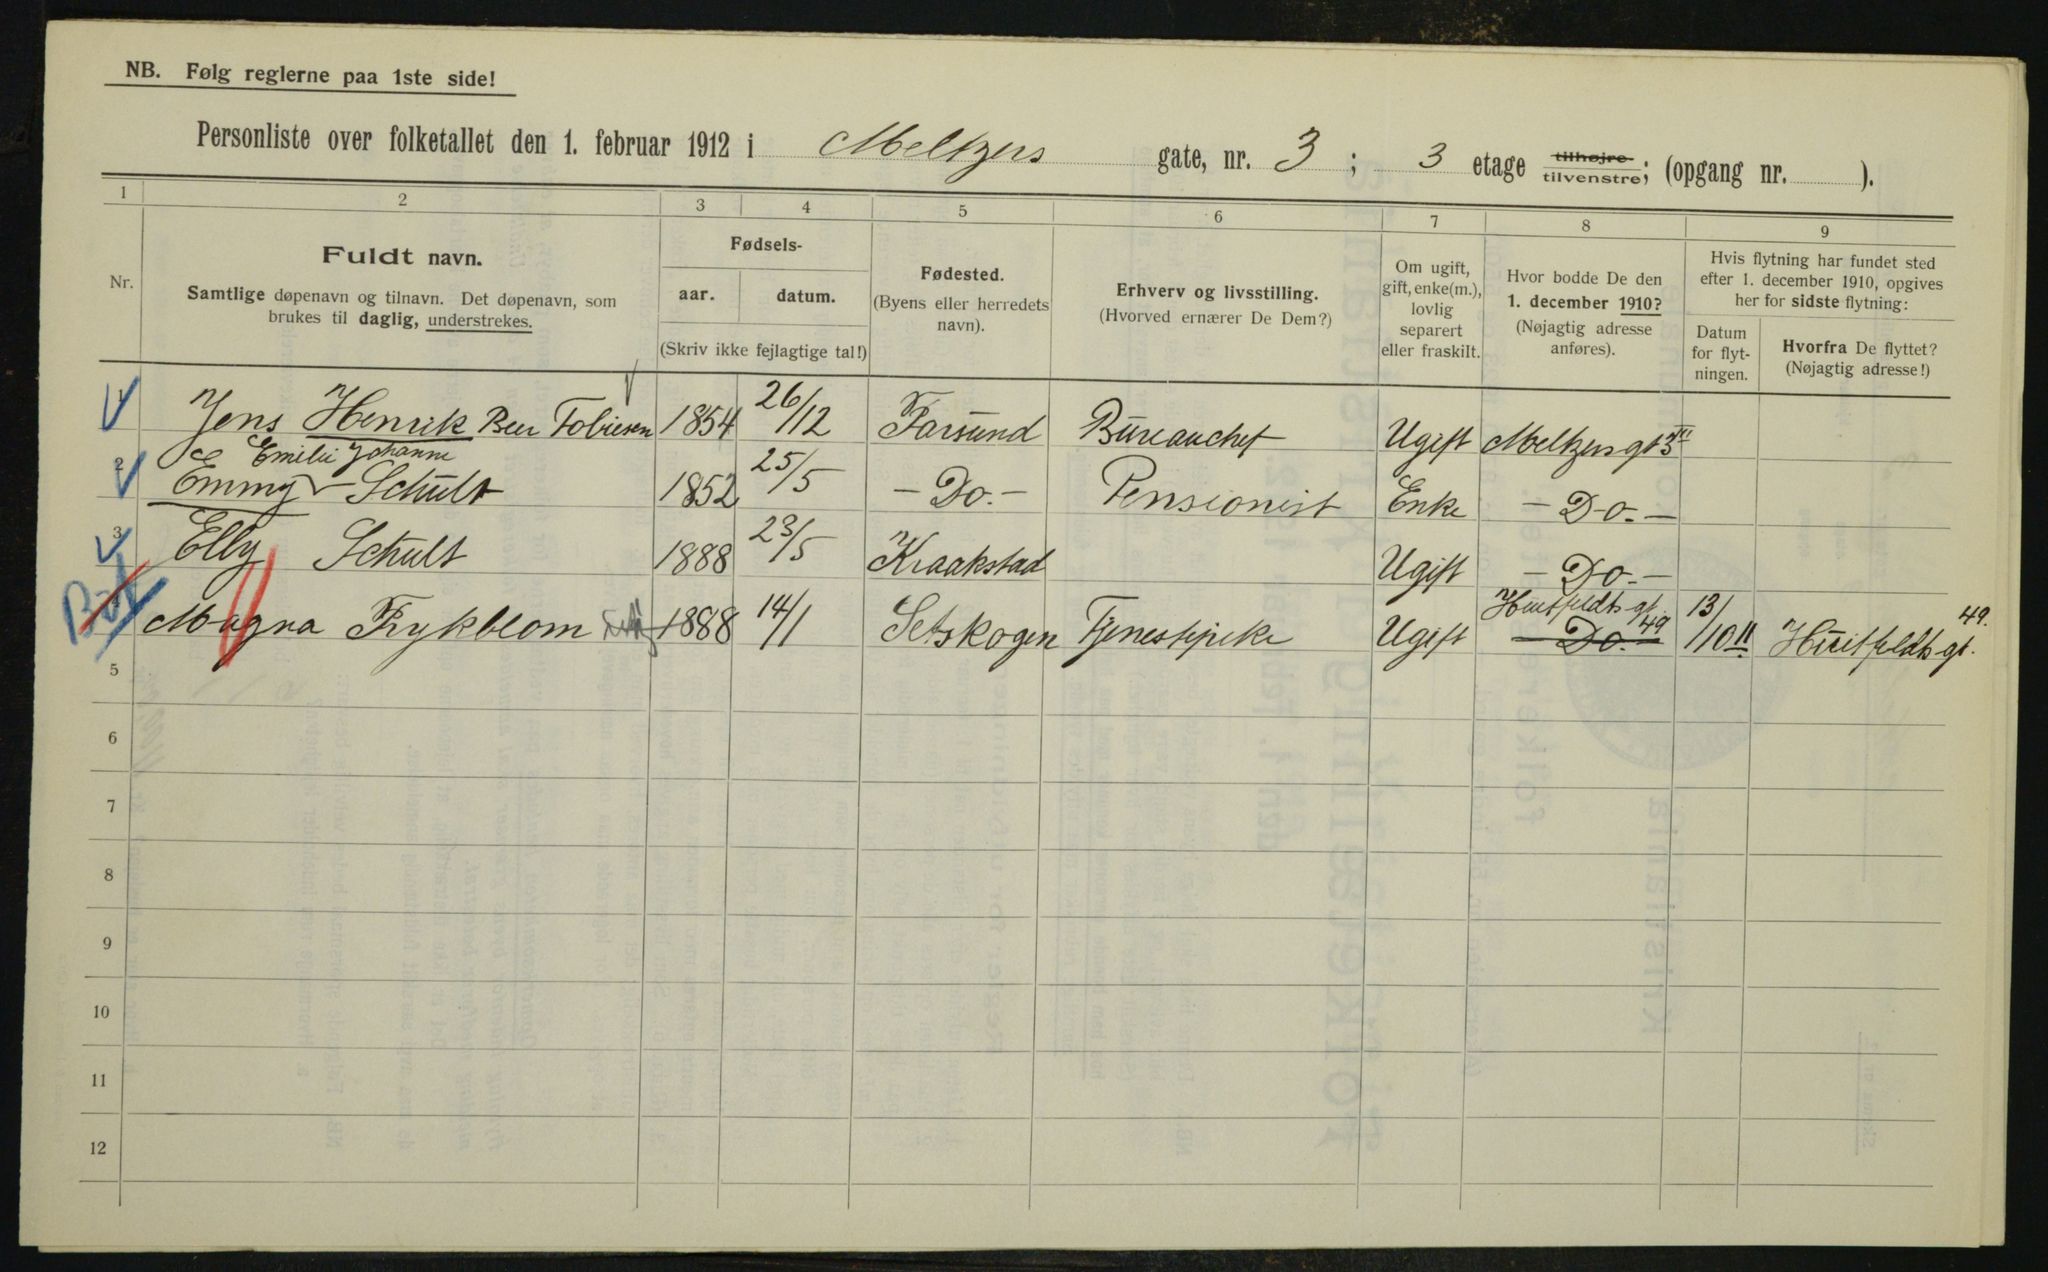 NB. Følg reglerne paa 1ste side!
Personliste over folketallet den 1. februar 1912 i Meltzers gate, nr. 3 ; 3 etage tilhøjre tilvenstre; (opgang nr. ).
1 2 3 4 5 6 7 8 9
Nr.
Fuldt navn.
Samtlige døpenavn og tilnavn. Det døpenavn, som
brukes til daglig, understrekes.
Fødsels-
aar. datum.
(Skriv ikke fejlagtige tal!)
Fødested.
(Byens eller herredets
navn).
Erhverv og livsstilling.
(Hvorved ernærer De Dem?)
Om ugift,
gift, enke(m.),
lovlig
separert
eller fraskilt.
Hvor bodde De den
1. december 1910?
(Nøjagtig adresse
anføres).
Hvis flytning har fundet sted
efter 1. december 1910, opgives
her for sidste flytning:
Datum
for flyt-
ningen.
Hvorfra De flyttet?
(Nøjagtig adresse!)
1 Jens Henrik Beer Tobiesen 1854 26/12 Farsund Bureauchef Ugift Meltzersgt 3 III
Emilie Johanne
2 Emmy Schult 1852 25/5 - Do. - Pensionist Enke - Do. -
3 Elly Schult 1888 23/5 Kraakstad Ugift - Do. -
Huitfeldts gt. 49
4 Magna Frykblom 1888 14/1 Setskogen Tjenestepike Ugift - Do. - 13/10 11 Huitfeldts gt. 49.
5
6
7
8
9
10
11
12